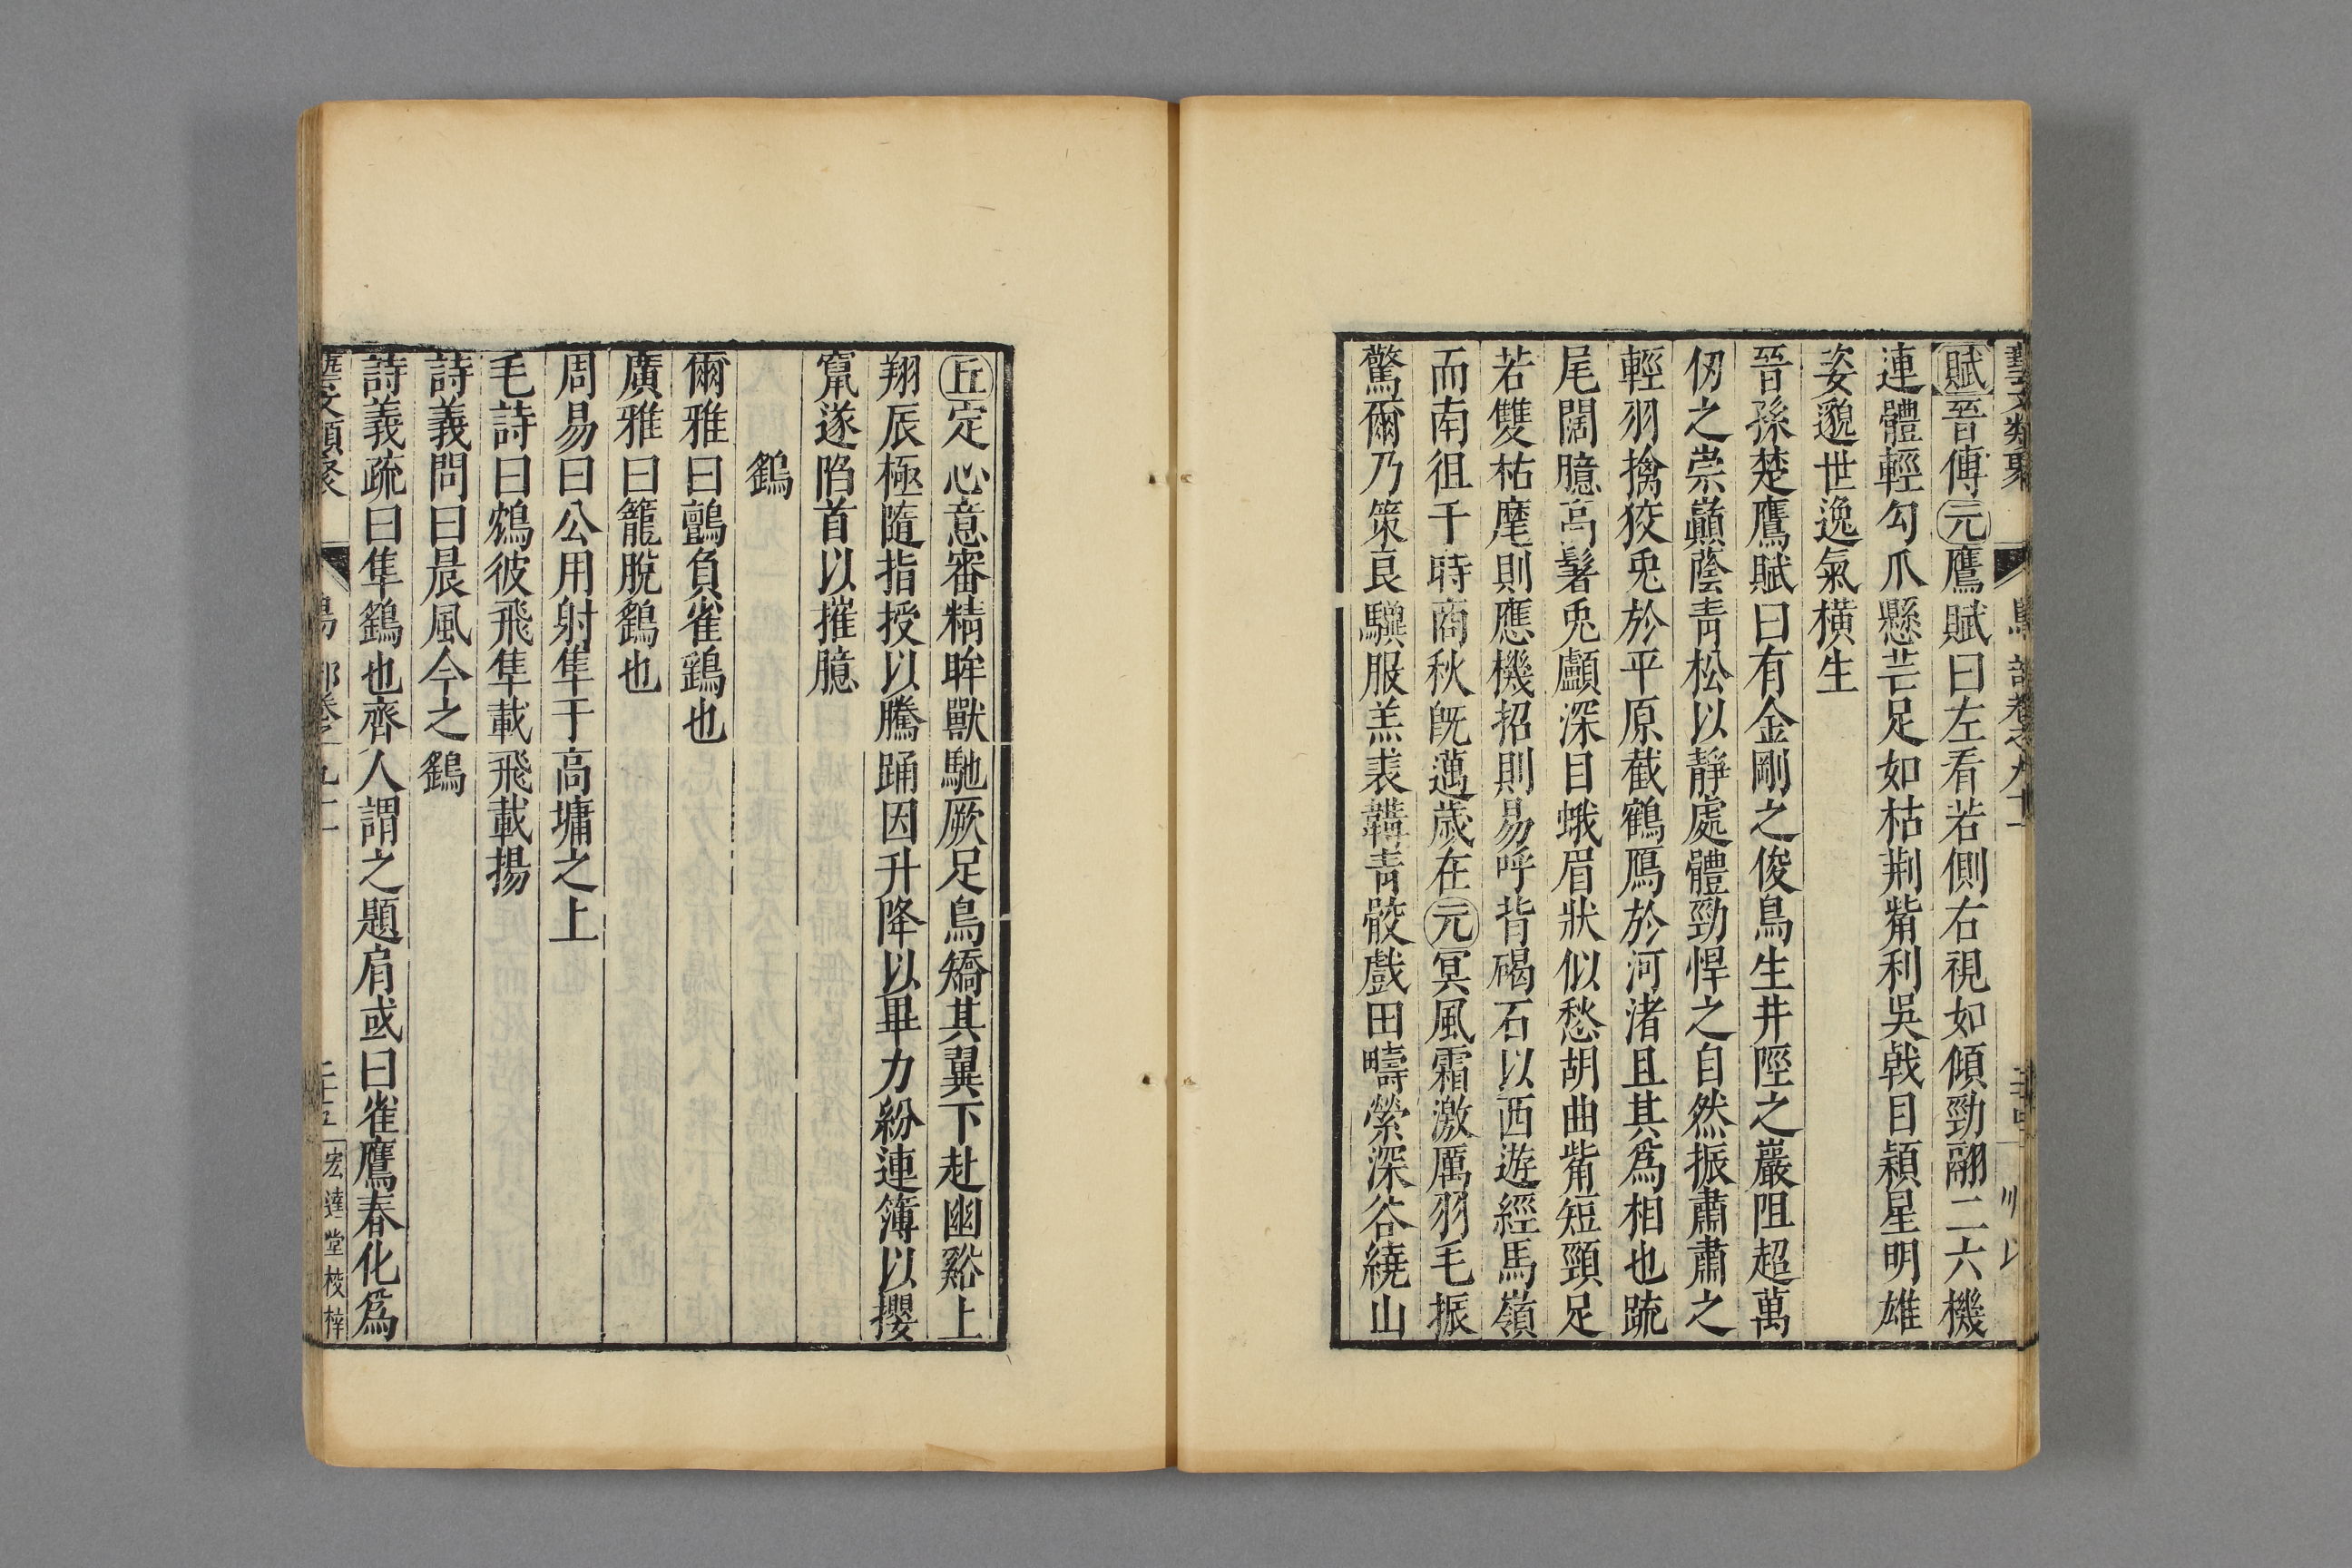 藝文類聚 鳥部卷之九十一
賦晉傅元鷹賦曰左看若側右視如傾勁翮二六機
連體輕勾爪懸芒足如枯荆觜利吳戟目穎星明雄
姿邈世逸氣横生
晉孫楚鷹賦曰有金剛之俊鳥生井陘之巖阻超萬
仞之崇巔蔭青松以靜處體勁悍之自然振肅肅之
輕羽擒狡兎於平原截鶴鴈於河渚且其爲相也疏
尾闊臆高髻兎顱深目蛾眉狀似愁胡曲觜短頸足
若雙枯麾則應機招則易呼背碣石以西遊經馬嶺
而南徂于時商秋既邁歲在元冥風霜激厲羽毛振
驚爾乃策良驥服羔裘韝青骹戲田疇縈深谷繞山
丘定心意審精眸獸馳厥足鳥矯其翼下赴幽谿上
翔辰極隨指授以騰踊因升降以畢力紛連簿以攖
竄遂陷首以摧臆
鷂
爾雅曰鸇負雀鷂也
廣雅曰籠脫鷂也
周易曰公用射隼于高墉之上
毛詩曰鴥彼飛隼載飛載揚
詩義問曰晨風今之鷂
詩義疏曰隼鷂也齊人謂之題肩或曰雀鷹春化爲
藝文類聚 鳥部卷之九十一 二十五 宏達堂校梓